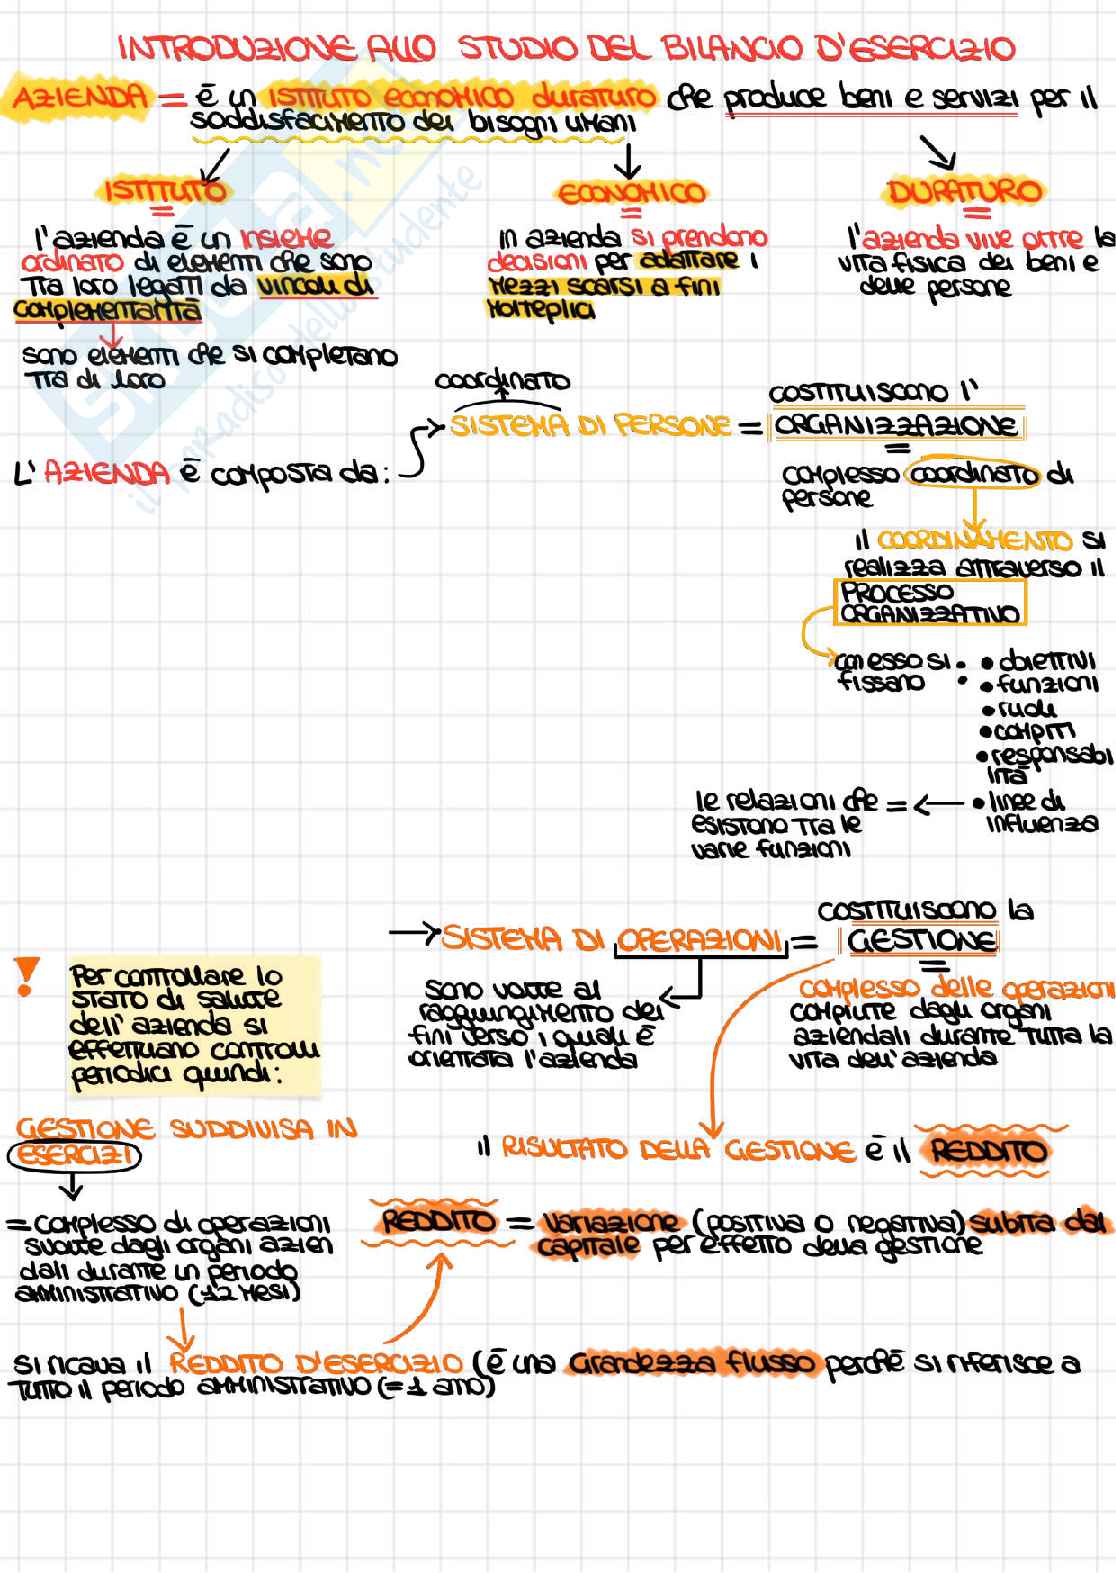 INTRODUZIONE ALLO STUDIO DEL BILANCIO D'ESERCIZIO
AZIENDA = è un ISTITUTO ECONOMICO duraturo che produce beni e servizi per il
soddisfacimento dei bisogni umani
ISTITUTO
l'azienda è un insieme
ordinato di elementi che sono
tra loro legati da vincoli di
complementarità
sono elementi che si completano
tra di loro
ECONOMICO
in azienda si prendono
decisioni per adattare i
mezzi scarsi a fini
molteplici
DURATURO
l'azienda vive oltre la
vita fisica dei beni e
delle persone
L'AZIENDA è composta da:
coordinato
SISTEMA DI PERSONE =
COSTITUISCONO l'
ORGANIZZAZIONE
complesso coordinato di
persone
il COORDINAMENTO si
realizza attraverso il
PROCESSO
ORGANIZZATIVO
con esso si :
fissano
• obiettivi
• funzioni
• ruoli
• compiti
• responsabi
lità
• linee di
influenza
le relazioni che =
esistono tra le
varie funzioni
SISTEMA DI OPERAZIONI =
COSTITUISCONO la
GESTIONE
sono volte al
raggiungimento dei
fini verso i quali è
orientata l'azienda
complesso delle operazioni
compiute dagli organi
aziendali durante tutta la
vita dell'azienda
!
Per controllare lo
stato di salute
dell'azienda si
effettuano controlli
periodici quindi:
GESTIONE SUDDIVISA IN
ESERCIZI
= complesso di operazioni
svolte dagli organi azien
dali durante un periodo
amministrativo (12 mesi)
il RISULTATO DELLA GESTIONE è il REDDITO
REDDITO = variazione (positiva o negativa) subita dal
capitale per effetto della gestione
si ricava il REDDITO D'ESERCIZIO (è una Grandezza flusso perché si riferisce a
tutto il periodo amministrativo (= 1 anno)
skuola.net
il paradiso dello studente